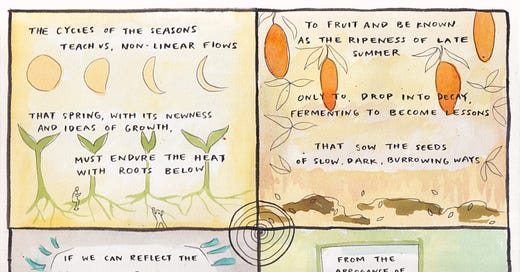 THE CYCLES OF THE SEASONS
TEACH US, NON-LINEAR FLOWS
THAT SPRING, WITH ITS NEWNESS
AND IDEAS OF GROWTH,
MUST ENDURE THE HEAT
WITH ROOTS BELOW
TO FRUIT AND BE KNOWN
AS THE RIPENESS OF LATE
SUMMER
ONLY TO DROP INTO DECAY,
FERMENTING TO BECOME LESSONS
THAT SOW THE SEEDS
OF SLOW, DARK, BURROWING WAYS
IF WE CAN REFLECT THE
FROM THE
ARROGANCE OF